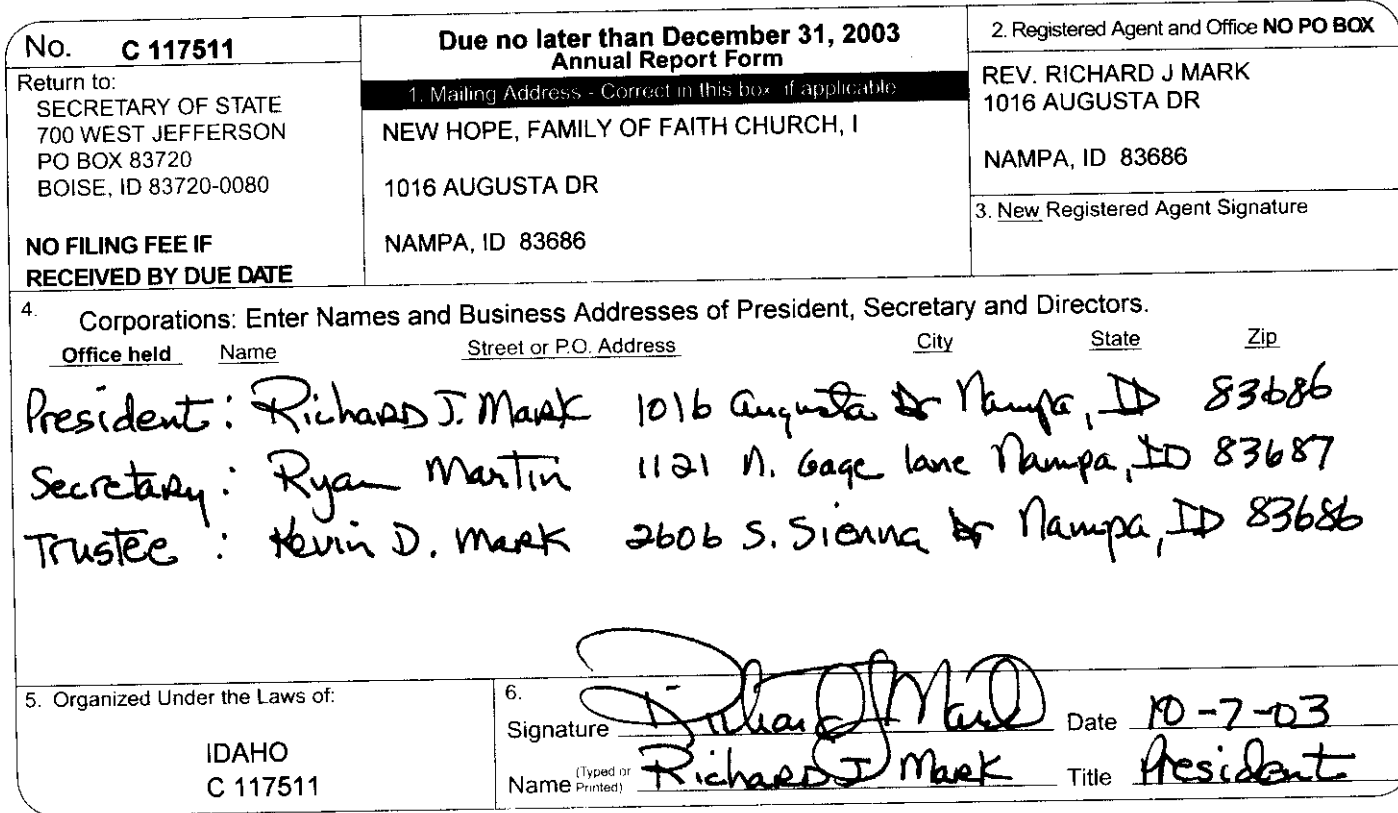 No. C 117511
Return to:
SECRETARY OF STATE
700 WEST JEFFERSON
PO BOX 83720
BOISE, ID 83720-0080
NO FILING FEE IF
RECEIVED BY DUE DATE
Due no later than December 31, 2003
Annual Report Form
1. Mailing Address - Correct in this box if applicable
NEW HOPE, FAMILY OF FAITH CHURCH, I
1016 AUGUSTA DR
NAMPA, ID 83686
2. Registered Agent and Office NO PO BOX
REV. RICHARD J MARK
1016 AUGUSTA DR
NAMPA, ID 83686
3. New Registered Agent Signature
4. Corporations: Enter Names and Business Addresses of President, Secretary and Directors.
Office held Name Street or P.O. Address City State Zip
President: Richard J. Mark 1016 Augusta Dr Nampa, ID 83686
Secretary: Ryan Martin 1121 N. Gage lane Nampa, ID 83687
Trustee: Kevin D. Mark 2606 S. Sienna Dr Nampa, ID 83686
5. Organized Under the Laws of:
IDAHO
C 117511
6.
Signature Richard J Mark Date 10-7-03
Name (Typed or Printed) Richard J Mark Title President